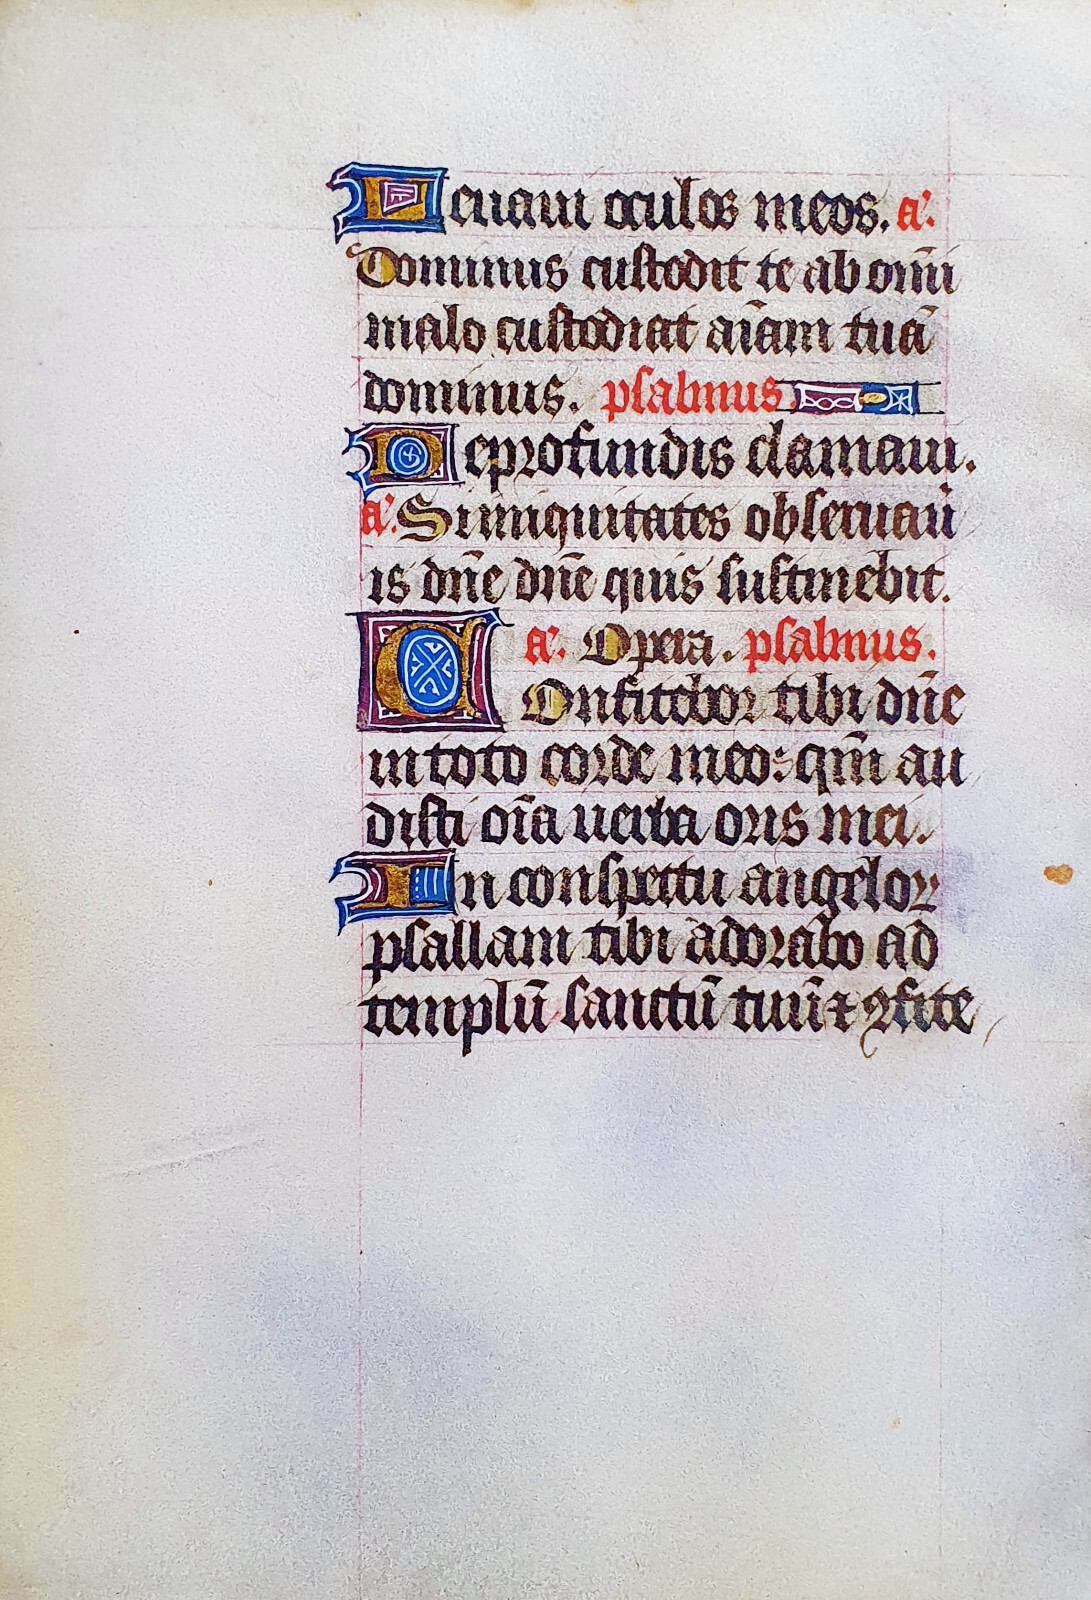 Leuaui oculos meos. a'.
Dominus custodit te ab om̄i
malo custodiat aīam tuā
dominus. psalmus.
De profundis clamaui.
a'. Si iniquitates obseruau
is dn̄e dn̄e quis sustinebit.
a'. Opera. psalmus.
COnfitebor tibi dn̄e
in toto corde meo: qm̄ au
disti oīa uerba oris mei.
In conspectu angeloꝝ
psallam tibi adorabo ad
templū sanctū tuū ⁊ ꝯfite